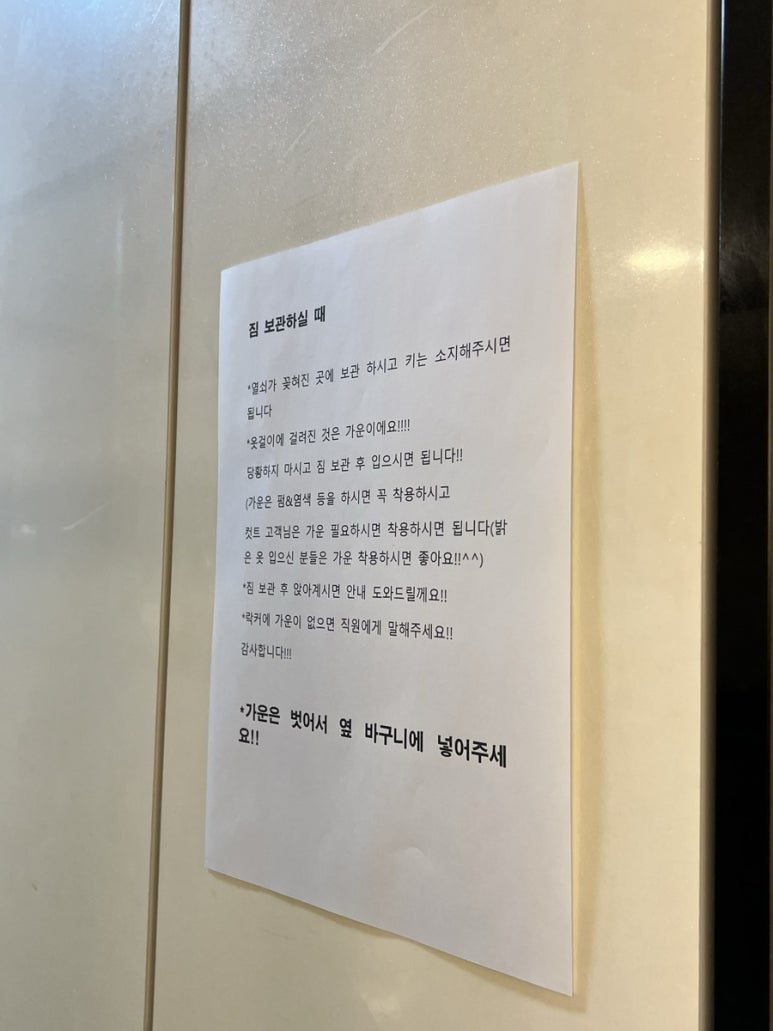 짐 보관하실 때
*열쇠가 꽂혀진 곳에 보관 하시고 키는 소지해주시면
됩니다
*옷걸이에 걸려진 것은 가운이에요!!!!
당황하지 마시고 짐 보관 후 입으시면 됩니다!!
(가운은 펌&염색 등을 하시면 꼭 착용하시고
컷트 고객님은 가운 필요하시면 착용하시면 됩니다(밝
은 옷 입으신 분들은 가운 착용하시면 좋아요!!^^)
*짐 보관 후 앉아계시면 안내 도와드릴께요!!
*락커에 가운이 없으면 직원에게 말해주세요!!
감사합니다!!!
*가운은 벗어서 옆 바구니에 넣어주세
요!!